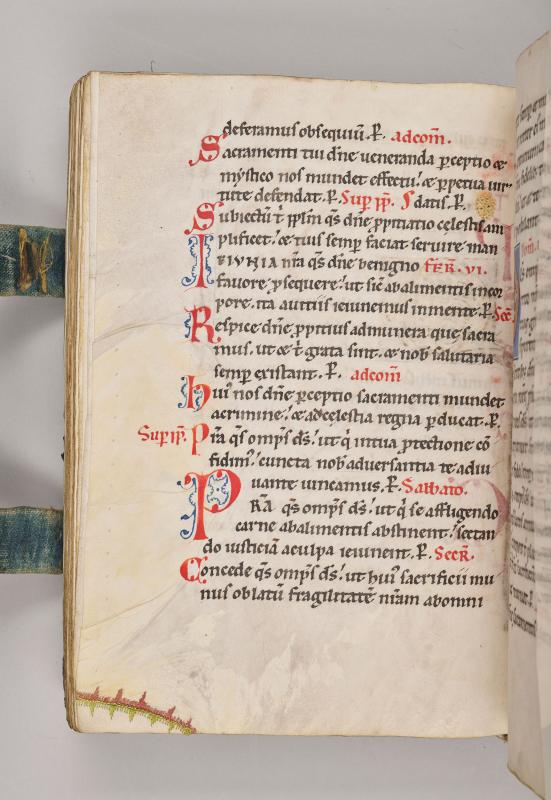 deferamus obsequiū. P. adcom̄.
Sacramenti tui dn̄e ueneranda ꝑceptio &
mystico nos mundet effectu. & ꝑpetua uir
tute defendat. P. Sup ip̄. S datis. P.
Subiectū t̄ pplm̄ qs̄ dn̄e ꝓpitiatio cęlestis am
plificet. & tuis semꝑ faciat seruire man
IEIUNIA nr̄a qs̄ dn̄e benigno FER̄. VI.
fauore ꝓsequere. ut sic̄ abalimentis incor
pore. ita auitiis ieiunemus inmente. P. Sec̄
Respice dn̄e ꝓpitius admunera que sacra
mus. ut & t̄ grata sint. & nob̄ salutaria
semꝑ existant. P. adcom̄
huiꝰ nos dn̄e ꝑceptio sacramenti mundet
acrimine. & adcelestia regna ꝑducat. P.
Sup ip̄. Pr̄a qs̄ omps̄ ds̄. ut q̇ intua ꝓtectione cō
fidim̄. cuncta nob̄ adversantia te adiu
uante uincamus. P. Sabbato.
PRĀ qs̄ omps̄ ds̄. ut q̇ se affligendo
carne abalimentis abstinent. sectan
do iusticiā aculpa ieiunent. P. Secr̄.
Concede qs̄ omps̄ ds̄. ut huiꝰ sacrificii mu
nus oblatū fragilitatē nr̄am abomni